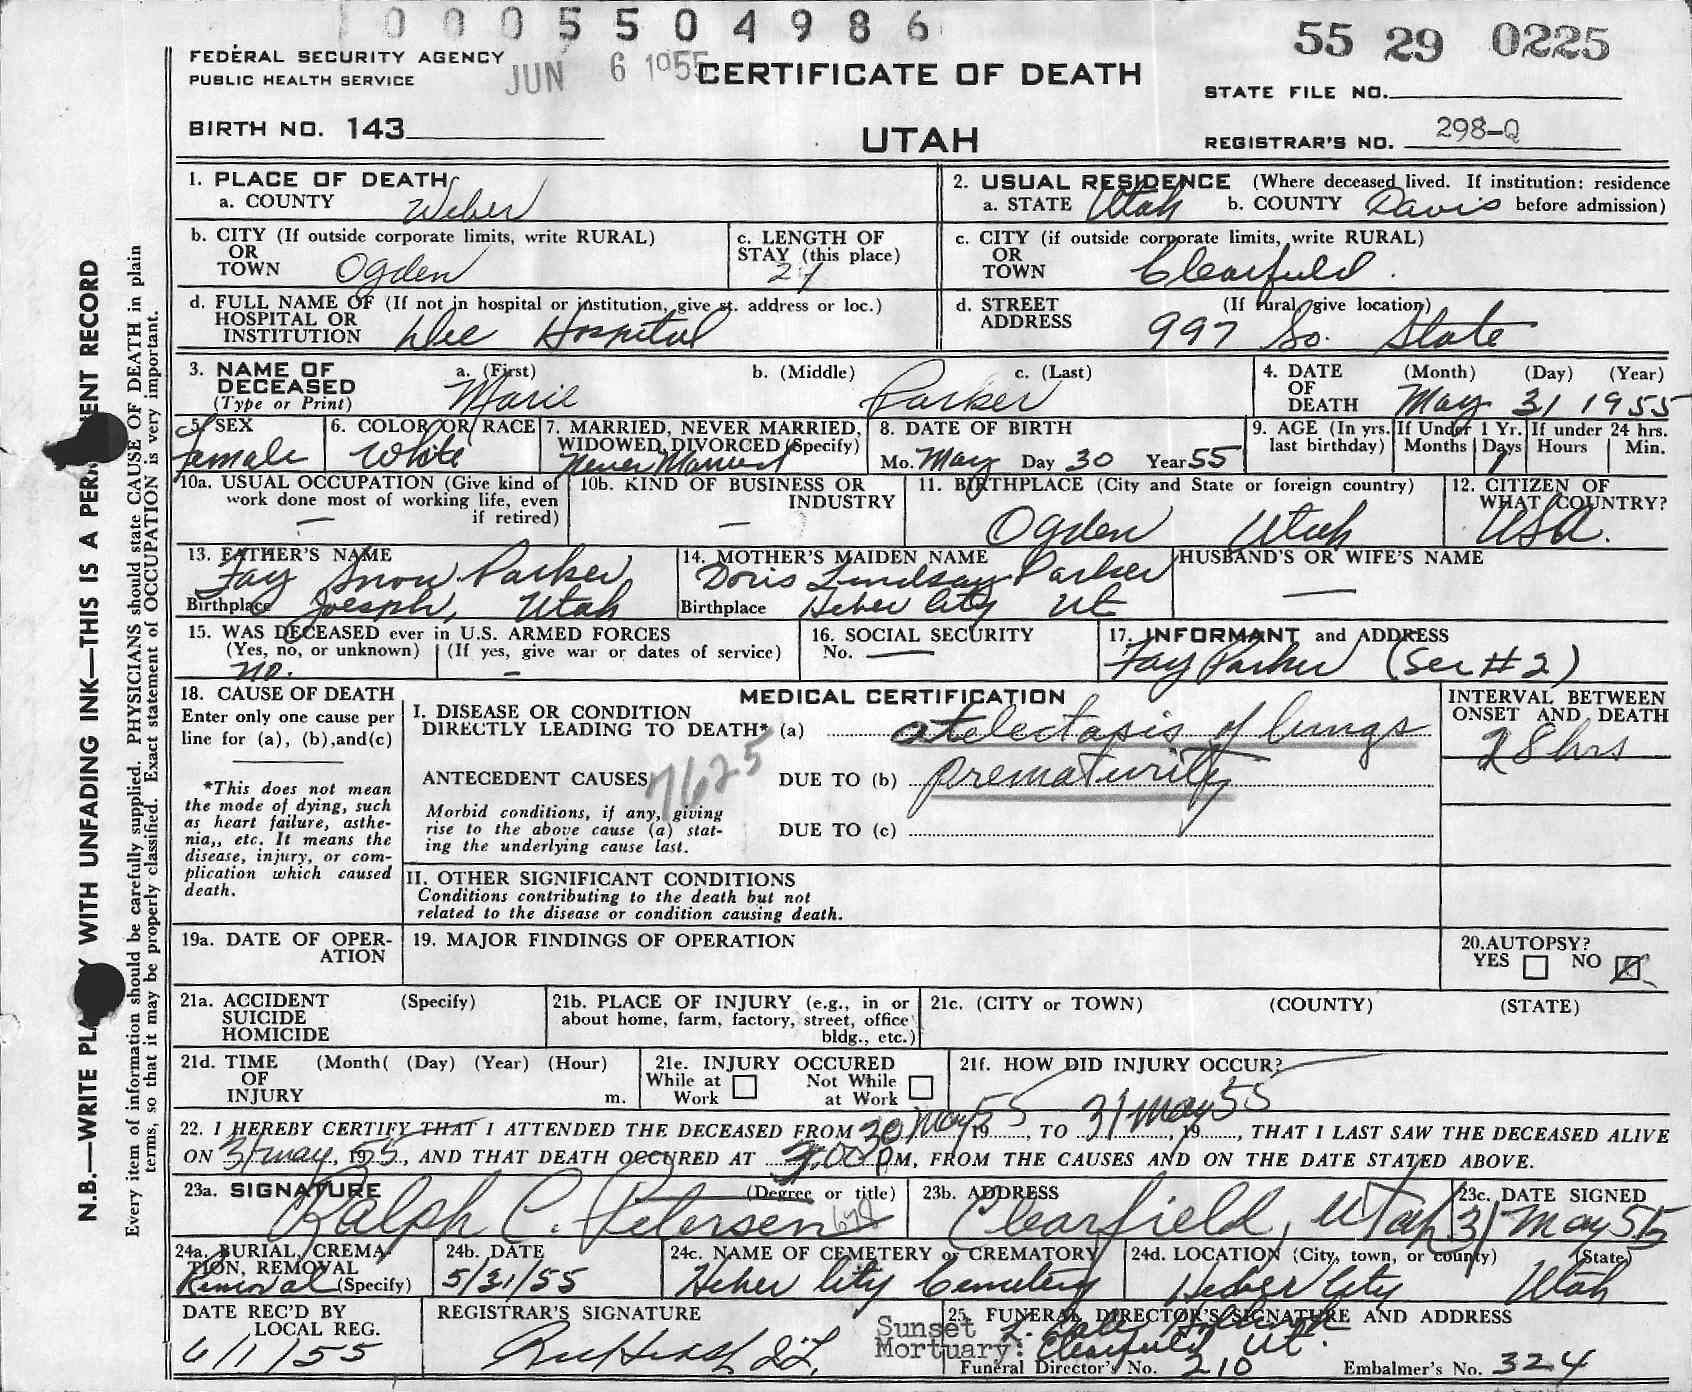 0005504986
55 29 0225
FEDERAL SECURITY AGENCY
PUBLIC HEALTH SERVICE
JUN 6 1955
CERTIFICATE OF DEATH
STATE FILE NO.
BIRTH NO. 143
UTAH
REGISTRAR'S NO. 298-Q
1. PLACE OF DEATH
a. COUNTY Weber
2. USUAL RESIDENCE (Where deceased lived. If institution: residence before admission)
a. STATE Utah b. COUNTY Davis
b. CITY (If outside corporate limits, write RURAL)
OR
TOWN Ogden
c. LENGTH OF
STAY (this place)
c. CITY (if outside corporate limits, write RURAL)
OR
TOWN Clearfield.
d. FULL NAME OF (If not in hospital or institution, give st. address or loc.)
HOSPITAL OR
INSTITUTION Dee Hospital
d. STREET (If rural, give location)
ADDRESS 997 So. State
3. NAME OF DECEASED
(Type or Print)
a. (First) Marie
b. (Middle)
c. (Last) Parker
4. DATE OF DEATH
(Month) (Day) (Year)
May 31 1955
5. SEX
female
6. COLOR OR RACE
White
7. MARRIED, NEVER MARRIED,
WIDOWED, DIVORCED (Specify)
Never Married
8. DATE OF BIRTH
Mo. May Day 30 Year 55
9. AGE (In yrs. last birthday)
If Under 1 Yr.
Months Days 1
If under 24 hrs.
Hours Min.
10a. USUAL OCCUPATION (Give kind of
work done most of working life, even
if retired) —
10b. KIND OF BUSINESS OR
INDUSTRY —
11. BIRTHPLACE (City and State or foreign country)
Ogden Utah
12. CITIZEN OF
WHAT COUNTRY?
USA.
13. FATHER'S NAME
Fay Snow Parker
Birthplace Joesph, Utah
14. MOTHER'S MAIDEN NAME
Doris Lindsay Parker
Birthplace Heber City Ut
HUSBAND'S OR WIFE'S NAME
—
15. WAS DECEASED ever in U.S. ARMED FORCES
(Yes, no, or unknown) (If yes, give war or dates of service)
no. -
16. SOCIAL SECURITY
No. —
17. INFORMANT and ADDRESS
Fay Parker (Sec #2)
18. CAUSE OF DEATH
Enter only one cause per
line for (a), (b), and (c)
*This does not mean
the mode of dying, such
as heart failure, asthe-
nia,, etc. It means the
disease, injury, or com-
plication which caused
death.
MEDICAL CERTIFICATION
I. DISEASE OR CONDITION
DIRECTLY LEADING TO DEATH* (a) atelectasis of lungs
ANTECEDENT CAUSES 7625
DUE TO (b) prematurity
Morbid conditions, if any, giving
rise to the above cause (a) stat-
ing the underlying cause last.
DUE TO (c)
INTERVAL BETWEEN
ONSET AND DEATH
28 hrs
II. OTHER SIGNIFICANT CONDITIONS
Conditions contributing to the death but not
related to the disease or condition causing death.
19a. DATE OF OPER-
ATION
19. MAJOR FINDINGS OF OPERATION
20. AUTOPSY?
YES NO
21a. ACCIDENT (Specify)
SUICIDE
HOMICIDE
21b. PLACE OF INJURY (e.g., in or
about home, farm, factory, street, office
bldg., etc.)
21c. (CITY or TOWN) (COUNTY) (STATE)
21d. TIME (Month( (Day) (Year) (Hour)
OF
INJURY m.
21e. INJURY OCCURED
While at Work Not While at Work
21f. HOW DID INJURY OCCUR?
22. I HEREBY CERTIFY THAT I ATTENDED THE DECEASED FROM 30 May 55 19, TO 31 May 55, 19, THAT I LAST SAW THE DECEASED ALIVE
ON 31 may, 1955, AND THAT DEATH OCCURED AT :00 PM, FROM THE CAUSES AND ON THE DATE STATED ABOVE.
23a. SIGNATURE (Degree or title)
Ralph C. Petersen
23b. ADDRESS
Clearfield, Utah
23c. DATE SIGNED
31 May 55
24a. BURIAL, CREMA-
TION, REMOVAL
Removal (Specify)
24b. DATE
5/31/55
24c. NAME OF CEMETERY or CREMATORY
Heber City Cemetery
24d. LOCATION (City, town, or county) (State)
Heber City Utah
DATE REC'D BY
LOCAL REG.
6/1/55
REGISTRAR'S SIGNATURE
25. FUNERAL DIRECTOR'S SIGNATURE AND ADDRESS
Sunset
Mortuary: Clearfield Ut.
Funeral Director's No. 210 Embalmer's No. 324
N.B.—WRITE WITH UNFADING INK—THIS IS A RECORD
Every item of information should be carefully supplied. PHYSICIANS should state CAUSE OF DEATH in plain
terms, so that it may be properly classified. Exact statement of OCCUPATION is very important.